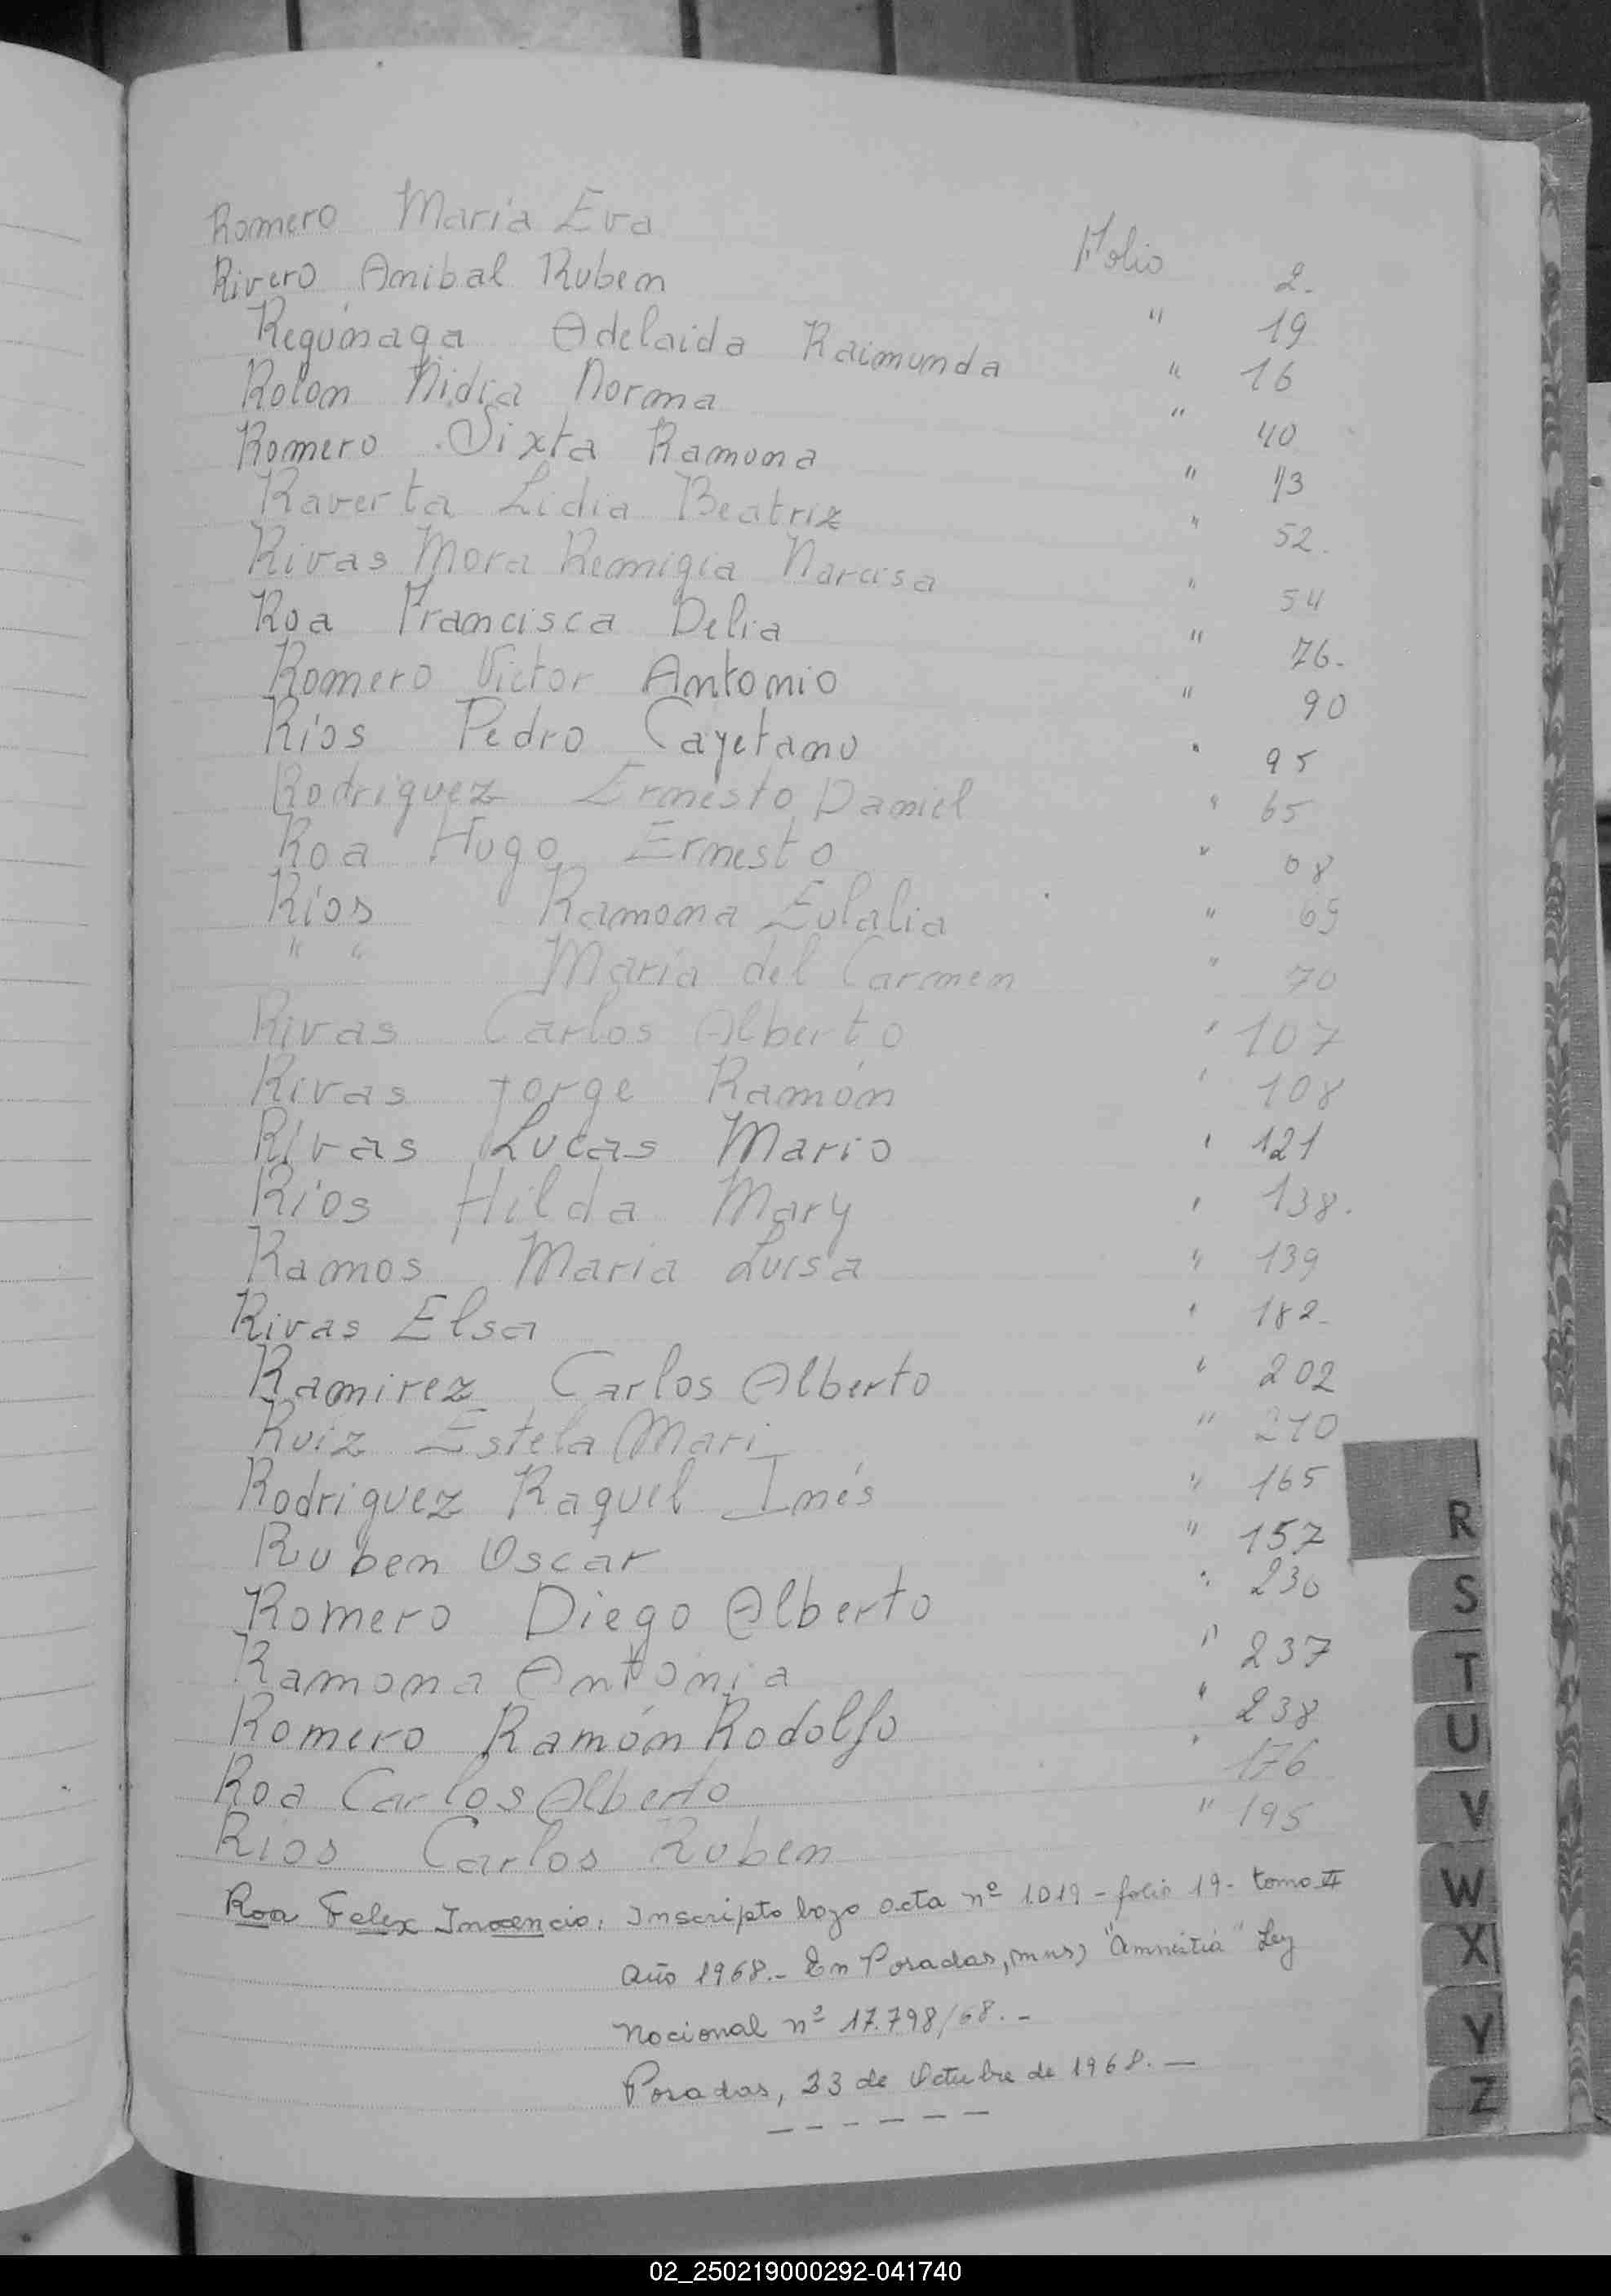 Romero Maria Eva Folio 2.
Rivero Anibal Ruben " 19
Regúnaga Adelaida Raimunda " 16
Rolon Nidia Norma " 40
Romero Sixta Ramona " 13
Raverta Lidia Beatriz " 52.
Rivas Mora Remigia Narcisa " 54
Roa Francisca Delia " 76.
Romero Victor Antonio " 90
Ríos Pedro Cayetano " 95
Rodriguez Ernesto Daniel " 65
Roa Hugo Ernesto " 08
Ríos Ramona Eulalia " 69
" " María del Carmen " 70
Rivas Carlos Alberto " 107
Rivas Jorge Ramón " 108
Rivas Lucas Mario " 121
Ríos Hilda Mary " 138.
Ramos Maria Luisa " 139
Rivas Elsa " 182.
Ramirez Carlos Alberto " 202
Ruiz Estela Mari " 210
Rodriguez Raquel Inés " 165
Ruben Oscar " 157
Romero Diego Alberto " 230
Ramona Antonia " 237
Romero Ramón Rodolfo " 238
Roa Carlos Alberto " 176
Rios Carlos Ruben " 195
Roa Felex Inocencio. Inscripto bajo acta nº 1.019 - folio 19 - tomo II
Año 1968.- En Posadas, mns) "Amnistia" Ley
Nacional nº 17.798/68.-
Posadas, 23 de Octubre de 1968.—
R
S
T
U
V
W
X
Y
Z
02_250219000292-041740